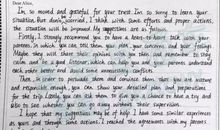 Dear Alice,
I'm so moved and grateful for your trust. I'm so sorry to learn your
situation. But don't worried, I think with some efforts and proper actions,
the situation will be improved. My suggestions are as follows.
Firstly, I strongly recommend you to have a heart-to-heart talk with your
parents, in which you can tell them your, your concerns, and your feelings.
Maybe they will share their opinion with you and remember to stay
calm and be a good listener, which can help you and your parents understand
each other better and avoid some unnecessary conflicts.
Then, in order to persuade them and convince them that you are mature
and responsible enough, you can show your detailed plan and preparations
for the trip. Lastly, you can ask them to give you a chance to have a try and
also to see whether you can go away without their supervision.
I hope that my suggestions may be of help. I have some similar experiences
as yours and through some actions, I reached the agreement with my parents.